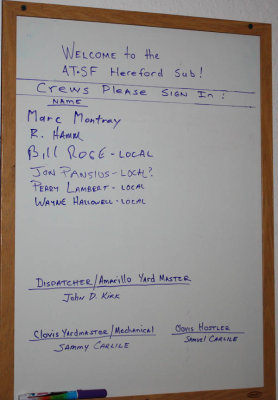 Welcome to the
AT·SF Hereford Sub!
Crews Please Sign In:
NAME
Marc Montray
R. HAMM
Bill ROSE - LOCAL
JON PANSIUS - LOCAL?
PERRY LAMBERT - LOCAL
WAYNE HALLOWELL - LOCAL
DISPATCHER/AMARILLO YARD MASTER
JOHN D. KIRK
CLOVIS YARDMASTER/MECHANICAL
SAMMY CARLILE
CLOVIS HOSTLER
SAMUEL CARLILE